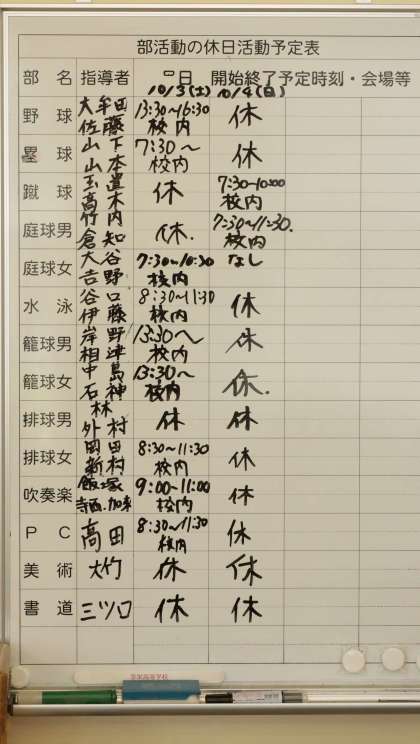 部活動の休日活動予定表
部 名 指導者 月日 開始終了予定時刻・会場等
10/3(土) 10/4(日)
野 球 大牟田 佐藤 13:30~16:30 校内 休
塁 球 山下 山本 7:30~ 校内 休
蹴 球 玉置 高木 休 7:30-10:00 校内
庭球男 竹内 倉知 休. 7:30~11:30. 校内
庭球女 大谷 吉野 7:30~10:30 校内 なし
水 泳 谷口 伊藤 8:30~11:30 校内 休
籠球男 岸野 相津 13:30~ 校内 休
籠球女 中島 石神 13:30~ 校内 休.
排球男 林 外村 休 休
排球女 岡田 新村 8:30~11:30 校内 休
吹奏楽 飯塚 寺西.加来 9:00~11:00 校内 休
P C 高田 8:30~11:30 校内 休
美 術 大竹 休 休
書 道 三ツ口 休 休